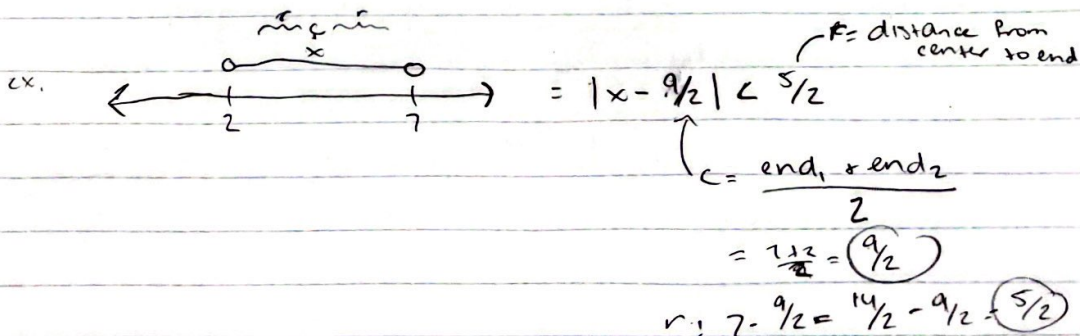 r c r
x
ex.
2 7
= |x - 9/2| < 5/2
r = distance from
center to end
c = end₁ + end₂
2
= 7+2/2 = 9/2
r: 7 - 9/2 = 14/2 - 9/2 = 5/2